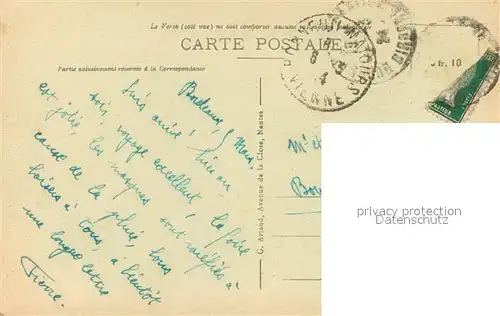 Le Verso (côté vue) ne doit comporter aucune
CARTE POSTALE
Partie exclusivement réservée à la Correspondance
Bordeaux, 5 Mars
Suis arrivé hier au
soir, voyage excellent la foire
est jolie les manèges sont raréfiés à
cause de la pluie, bons
baisers à tous, à bientôt
une longue lettre
Pierre.
G. Artaud, Avenue de la Close, Nantes
VIENNE
fr. 10
Mr et
Bon
privacy protection
Datenschutz